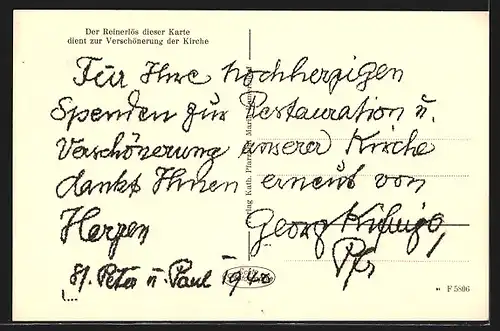 Der Reinerlös dieser Karte
dient zur Verschönerung der Kirche
Für Ihre hochherzigen
Spenden zur Restauration u.
Verschönerung unserer Kirche
dankt Ihnen erneut von
Herzen Georg
Pfr
St. Peter u. Paul 19
Kath. Pfarramt
F 5806